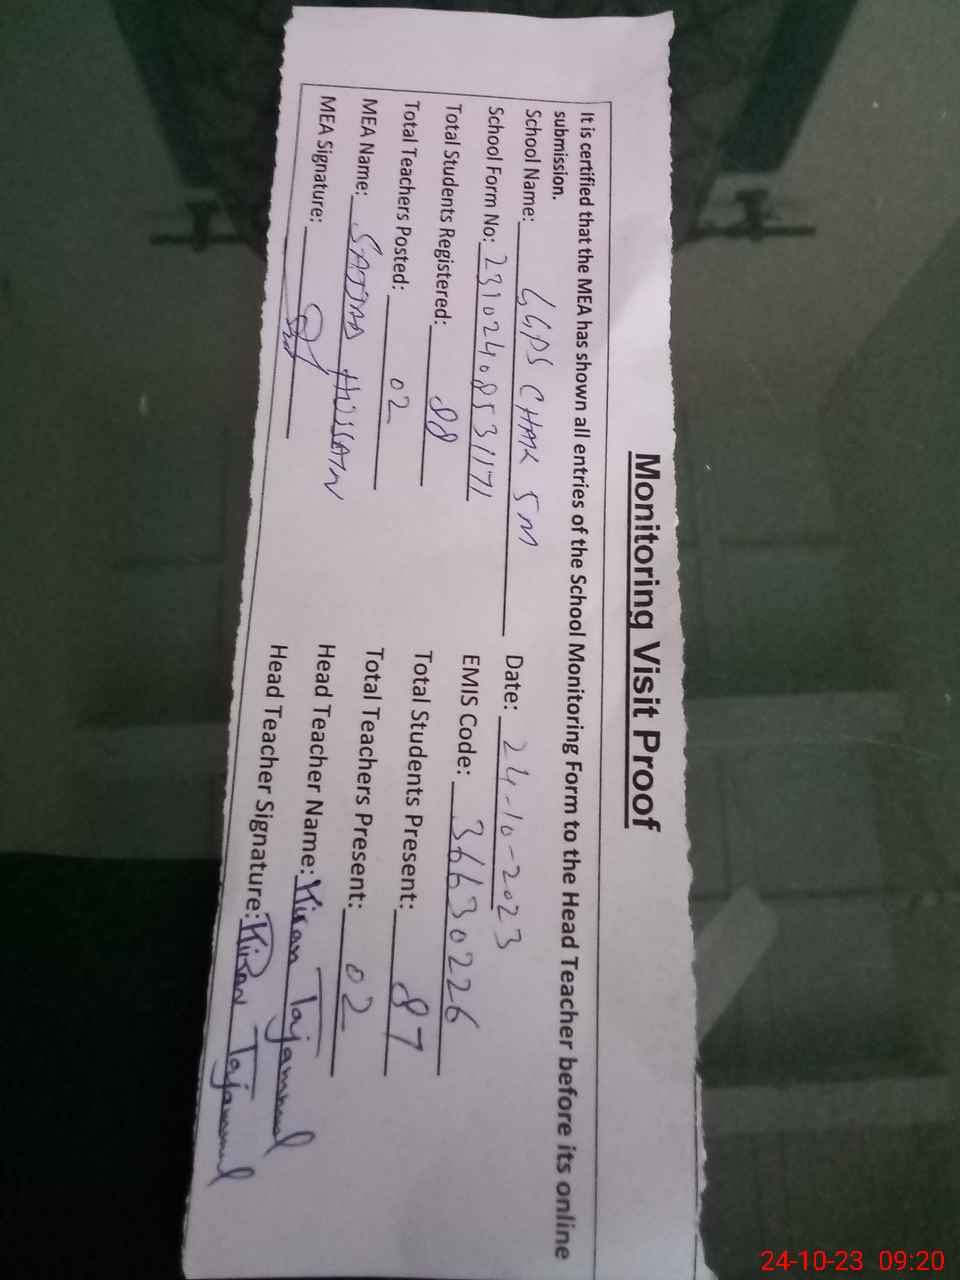 Monitoring Visit Proof
It is certified that the MEA has shown all entries of the School Monitoring Form to the Head Teacher before its online
submission.
School Name: GGPS CHAK 5M Date: 24-10-2023
School Form No: 23102408531171 EMIS Code: 36630226
Total Students Registered: 88 Total Students Present: 87
Total Teachers Posted: 02 Total Teachers Present: 02
MEA Name: SAJJAD HUSSAIN Head Teacher Name: Kiran Tajammul
MEA Signature: Head Teacher Signature: Kiran Tajammul
24-10-23 09:20